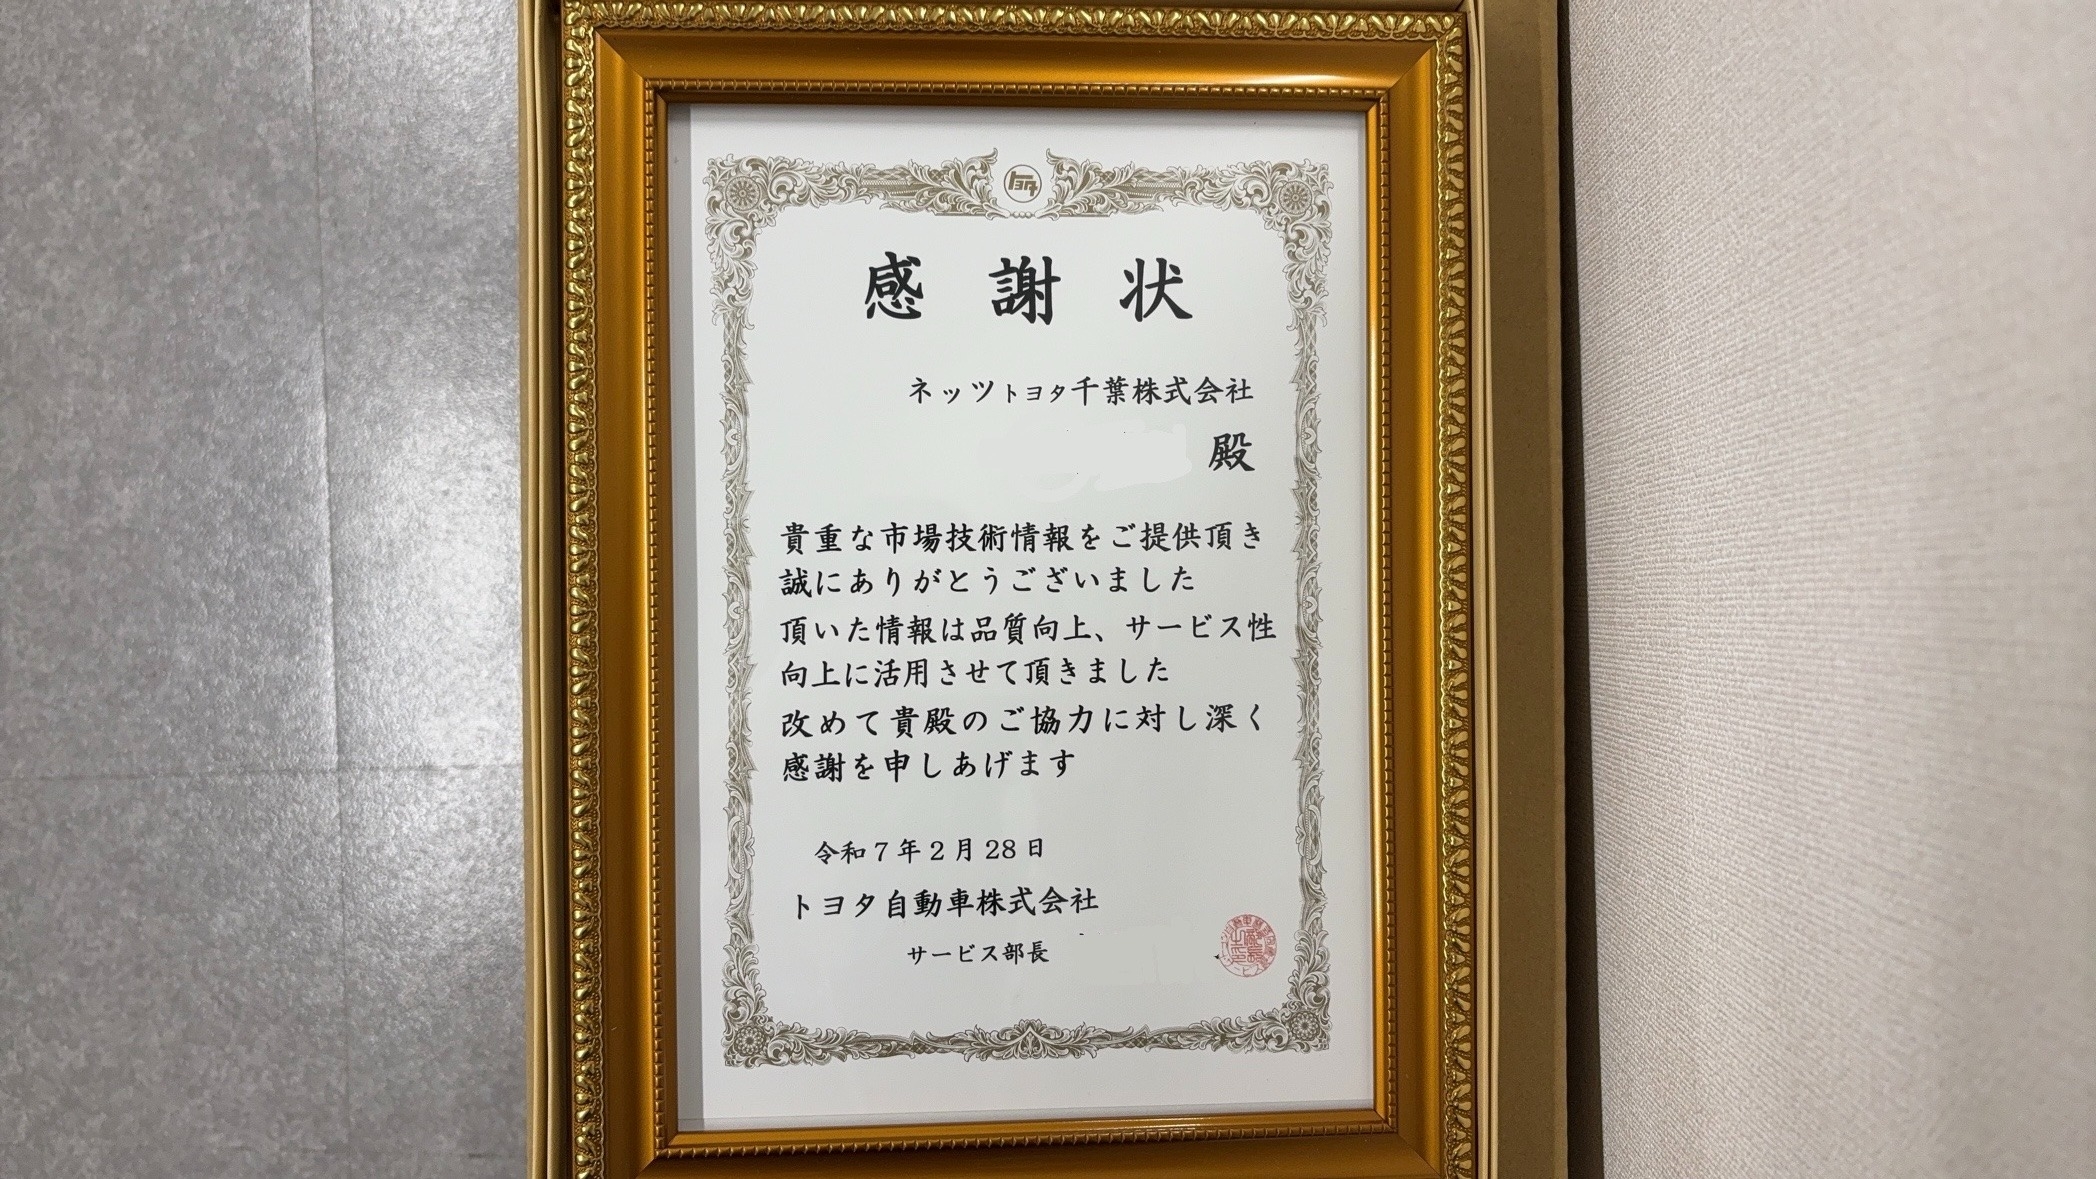 トヨタ
感謝状
ネッツトヨタ千葉株式会社
殿
貴重な市場技術情報をご提供頂き
誠にありがとうございました
頂いた情報は品質向上、サービス性
向上に活用させて頂きました
改めて貴殿のご協力に対し深く
感謝を申しあげます
令和7年2月28日
トヨタ自動車株式会社
サービス部長